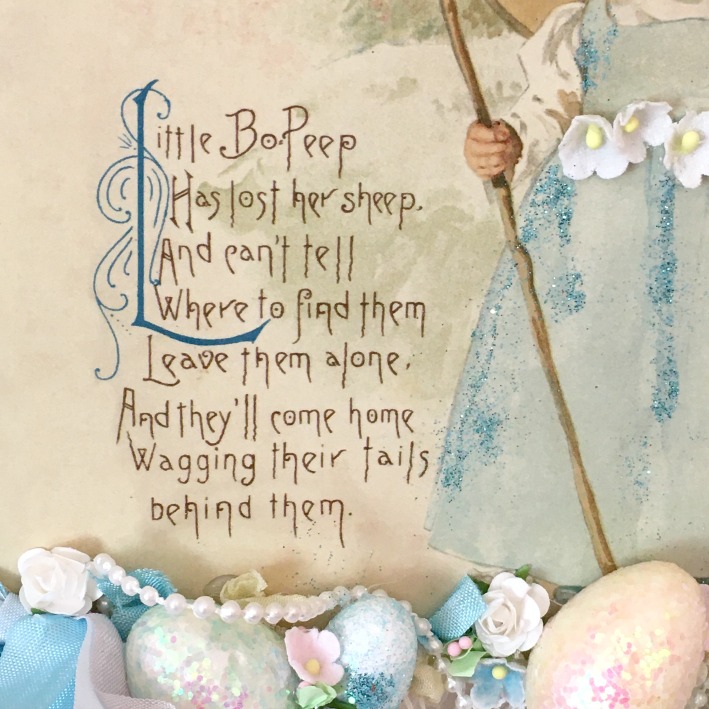 Little Bo-Peep
Has lost her sheep.
And can't tell
Where to find them
Leave them alone,
And they'll come home
Wagging their tails
behind them.